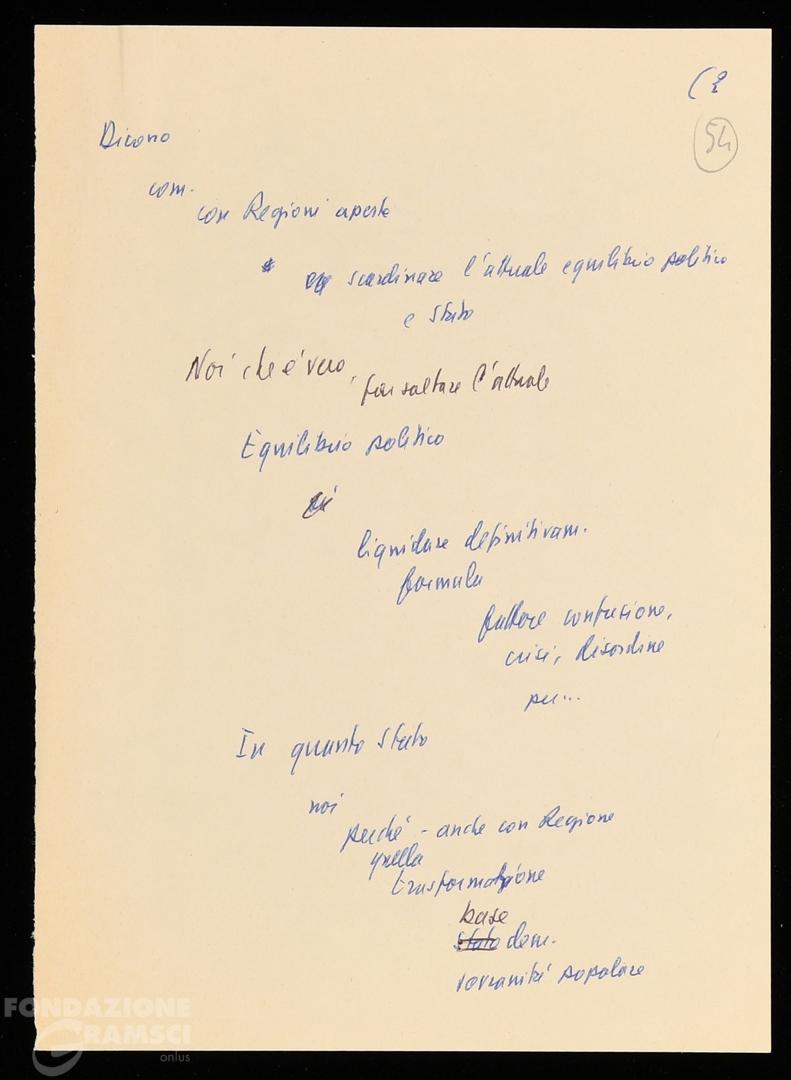 54
Dicono
com.
con Regioni aperte
scardinare l'attuale equilibrio politico
e Stato
Noi che è vero,
far saltare l'attuale
Equilibrio politico
liquidare definitivam.
formula
fattore confusione,
crisi, disordine
per...
In quanto Stato
noi
perché - anche con Regione
quella
trasformazione
base
Stato dem.
sovranità popolare
FONDAZIONE
GRAMSCI
onlus